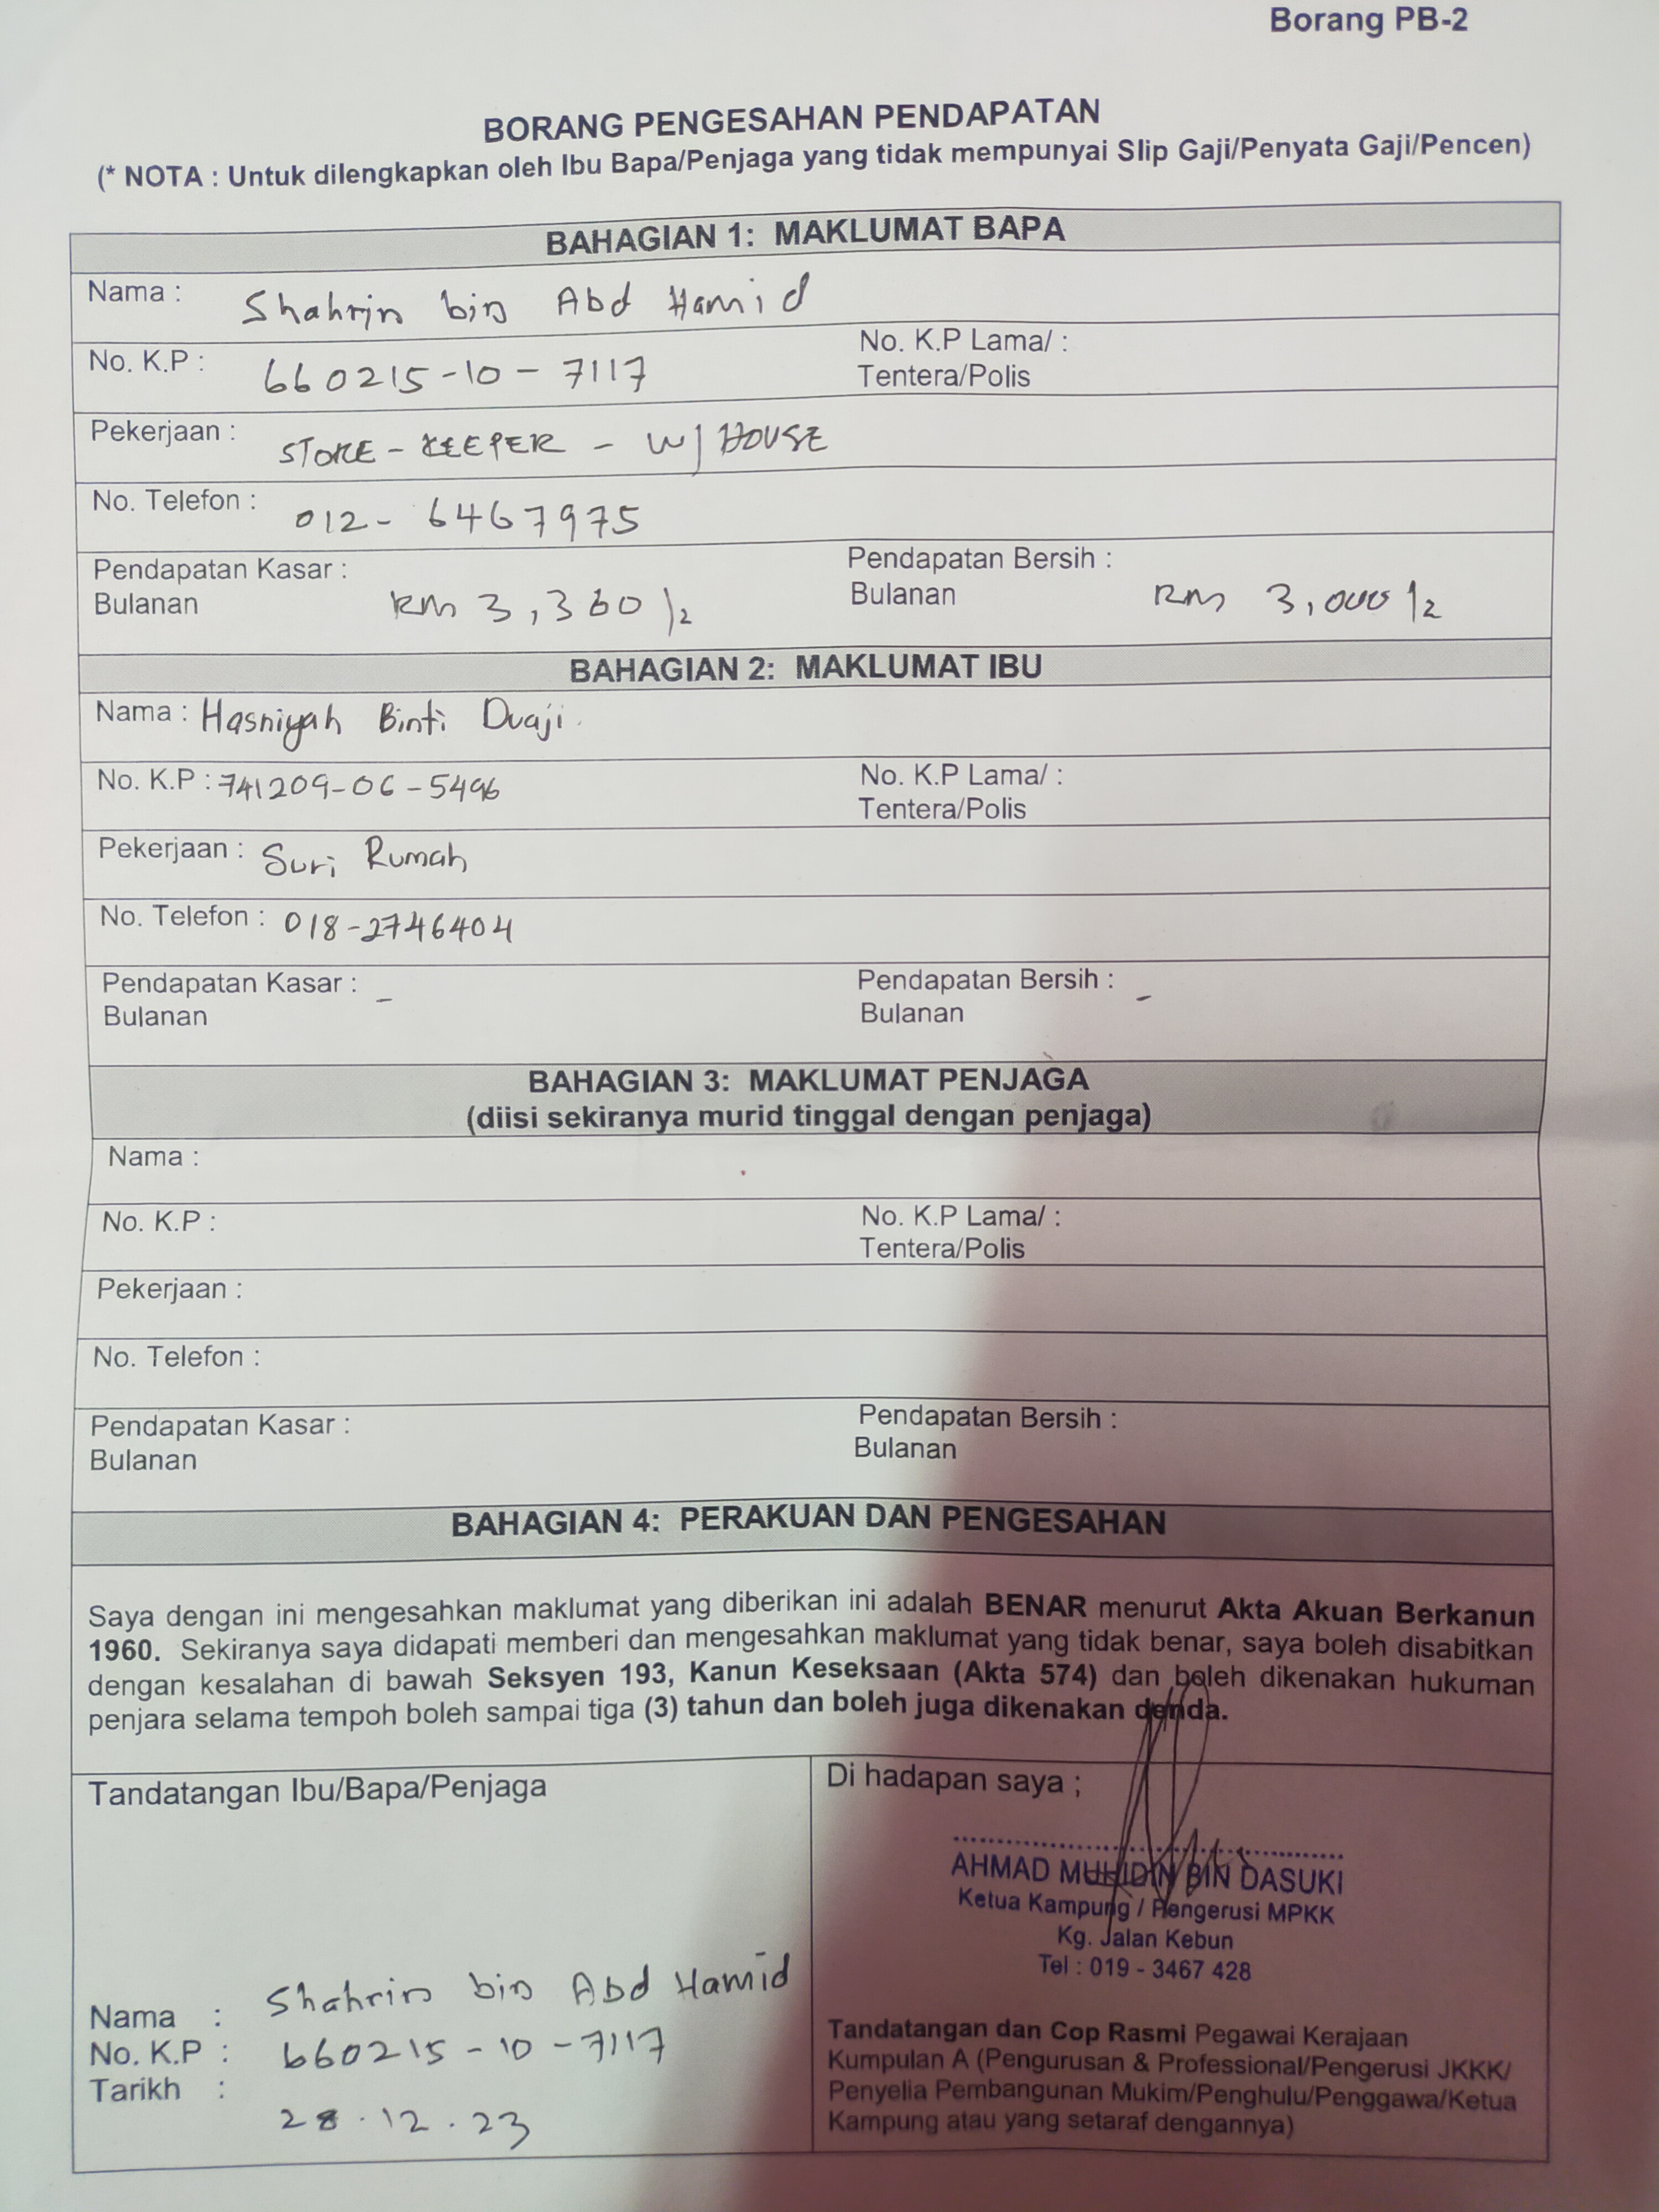 Borang PB-2
BORANG PENGESAHAN PENDAPATAN
(* NOTA : Untuk dilengkapkan oleh Ibu Bapa/Penjaga yang tidak mempunyai Slip Gaji/Penyata Gaji/Pencen)
BAHAGIAN 1: MAKLUMAT BAPA
Nama : Shahrin bin Abd Hamid
No. K.P : 660215-10-7117 No. K.P Lama/ :
Tentera/Polis
Pekerjaan : STORE-KEEPER - W/HOUSE
No. Telefon : 012-6467975
Pendapatan Kasar : Pendapatan Bersih :
Bulanan RM 3,360/2 Bulanan RM 3,000/2
BAHAGIAN 2: MAKLUMAT IBU
Nama : Hasniyah Binti Duaji.
No. K.P : 741209-06-5496 No. K.P Lama/ :
Tentera/Polis
Pekerjaan : Suri Rumah
No. Telefon : 018-2746404
Pendapatan Kasar : - Pendapatan Bersih : -
Bulanan Bulanan
BAHAGIAN 3: MAKLUMAT PENJAGA
(diisi sekiranya murid tinggal dengan penjaga)
Nama :
No. K.P : No. K.P Lama/ :
Tentera/Polis
Pekerjaan :
No. Telefon :
Pendapatan Kasar : Pendapatan Bersih :
Bulanan Bulanan
BAHAGIAN 4: PERAKUAN DAN PENGESAHAN
Saya dengan ini mengesahkan maklumat yang diberikan ini adalah BENAR menurut Akta Akuan Berkanun
1960. Sekiranya saya didapati memberi dan mengesahkan maklumat yang tidak benar, saya boleh disabitkan
dengan kesalahan di bawah Seksyen 193, Kanun Keseksaan (Akta 574) dan boleh dikenakan hukuman
penjara selama tempoh boleh sampai tiga (3) tahun dan boleh juga dikenakan denda.
Tandatangan Ibu/Bapa/Penjaga
Nama : Shahrin bin Abd Hamid
No. K.P : 660215-10-7117
Tarikh :
28.12.23
Di hadapan saya ;
AHMAD MUHIDIN BIN DASUKI
Ketua Kampung / Pengerusi MPKK
Kg. Jalan Kebun
Tel : 019 - 3467 428
Tandatangan dan Cop Rasmi Pegawai Kerajaan
Kumpulan A (Pengurusan & Professional/Pengerusi JKKK/
Penyelia Pembangunan Mukim/Penghulu/Penggawa/Ketua
Kampung atau yang setaraf dengannya)